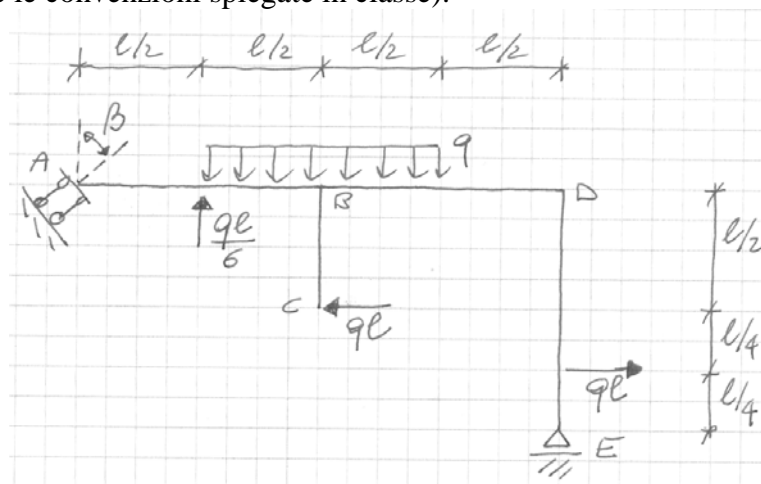 le convenzioni spiegate in classe).
l/2 l/2 l/2 l/2
β
A
q
B
D
ql/6
l/2
C
ql
l/4
ql
l/4
E